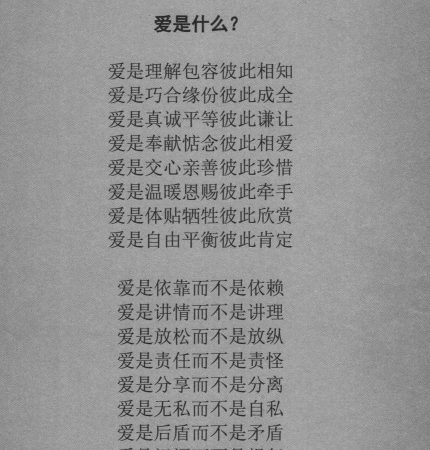 爱是什么？
爱是理解包容彼此相知
爱是巧合缘份彼此成全
爱是真诚平等彼此谦让
爱是奉献惦念彼此相爱
爱是交心亲善彼此珍惜
爱是温暖恩赐彼此牵手
爱是体贴牺牲彼此欣赏
爱是自由平衡彼此肯定
爱是依靠而不是依赖
爱是讲情而不是讲理
爱是放松而不是放纵
爱是责任而不是责怪
爱是分享而不是分离
爱是无私而不是自私
爱是后盾而不是矛盾